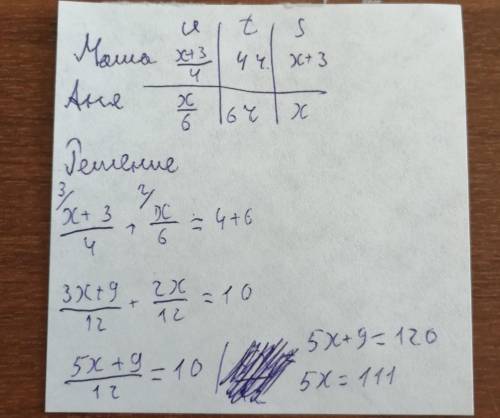 v t S
Маша (x+3)/4 4 ч. x+3
Аня x/6 6 ч x
Решение
3/ (x+3)/4 + 2/ x/6 = 4+6
(3x+9)/12 + 2x/12 = 10
(5x+9)/12 = 10 | 5x+9=120
5x=111